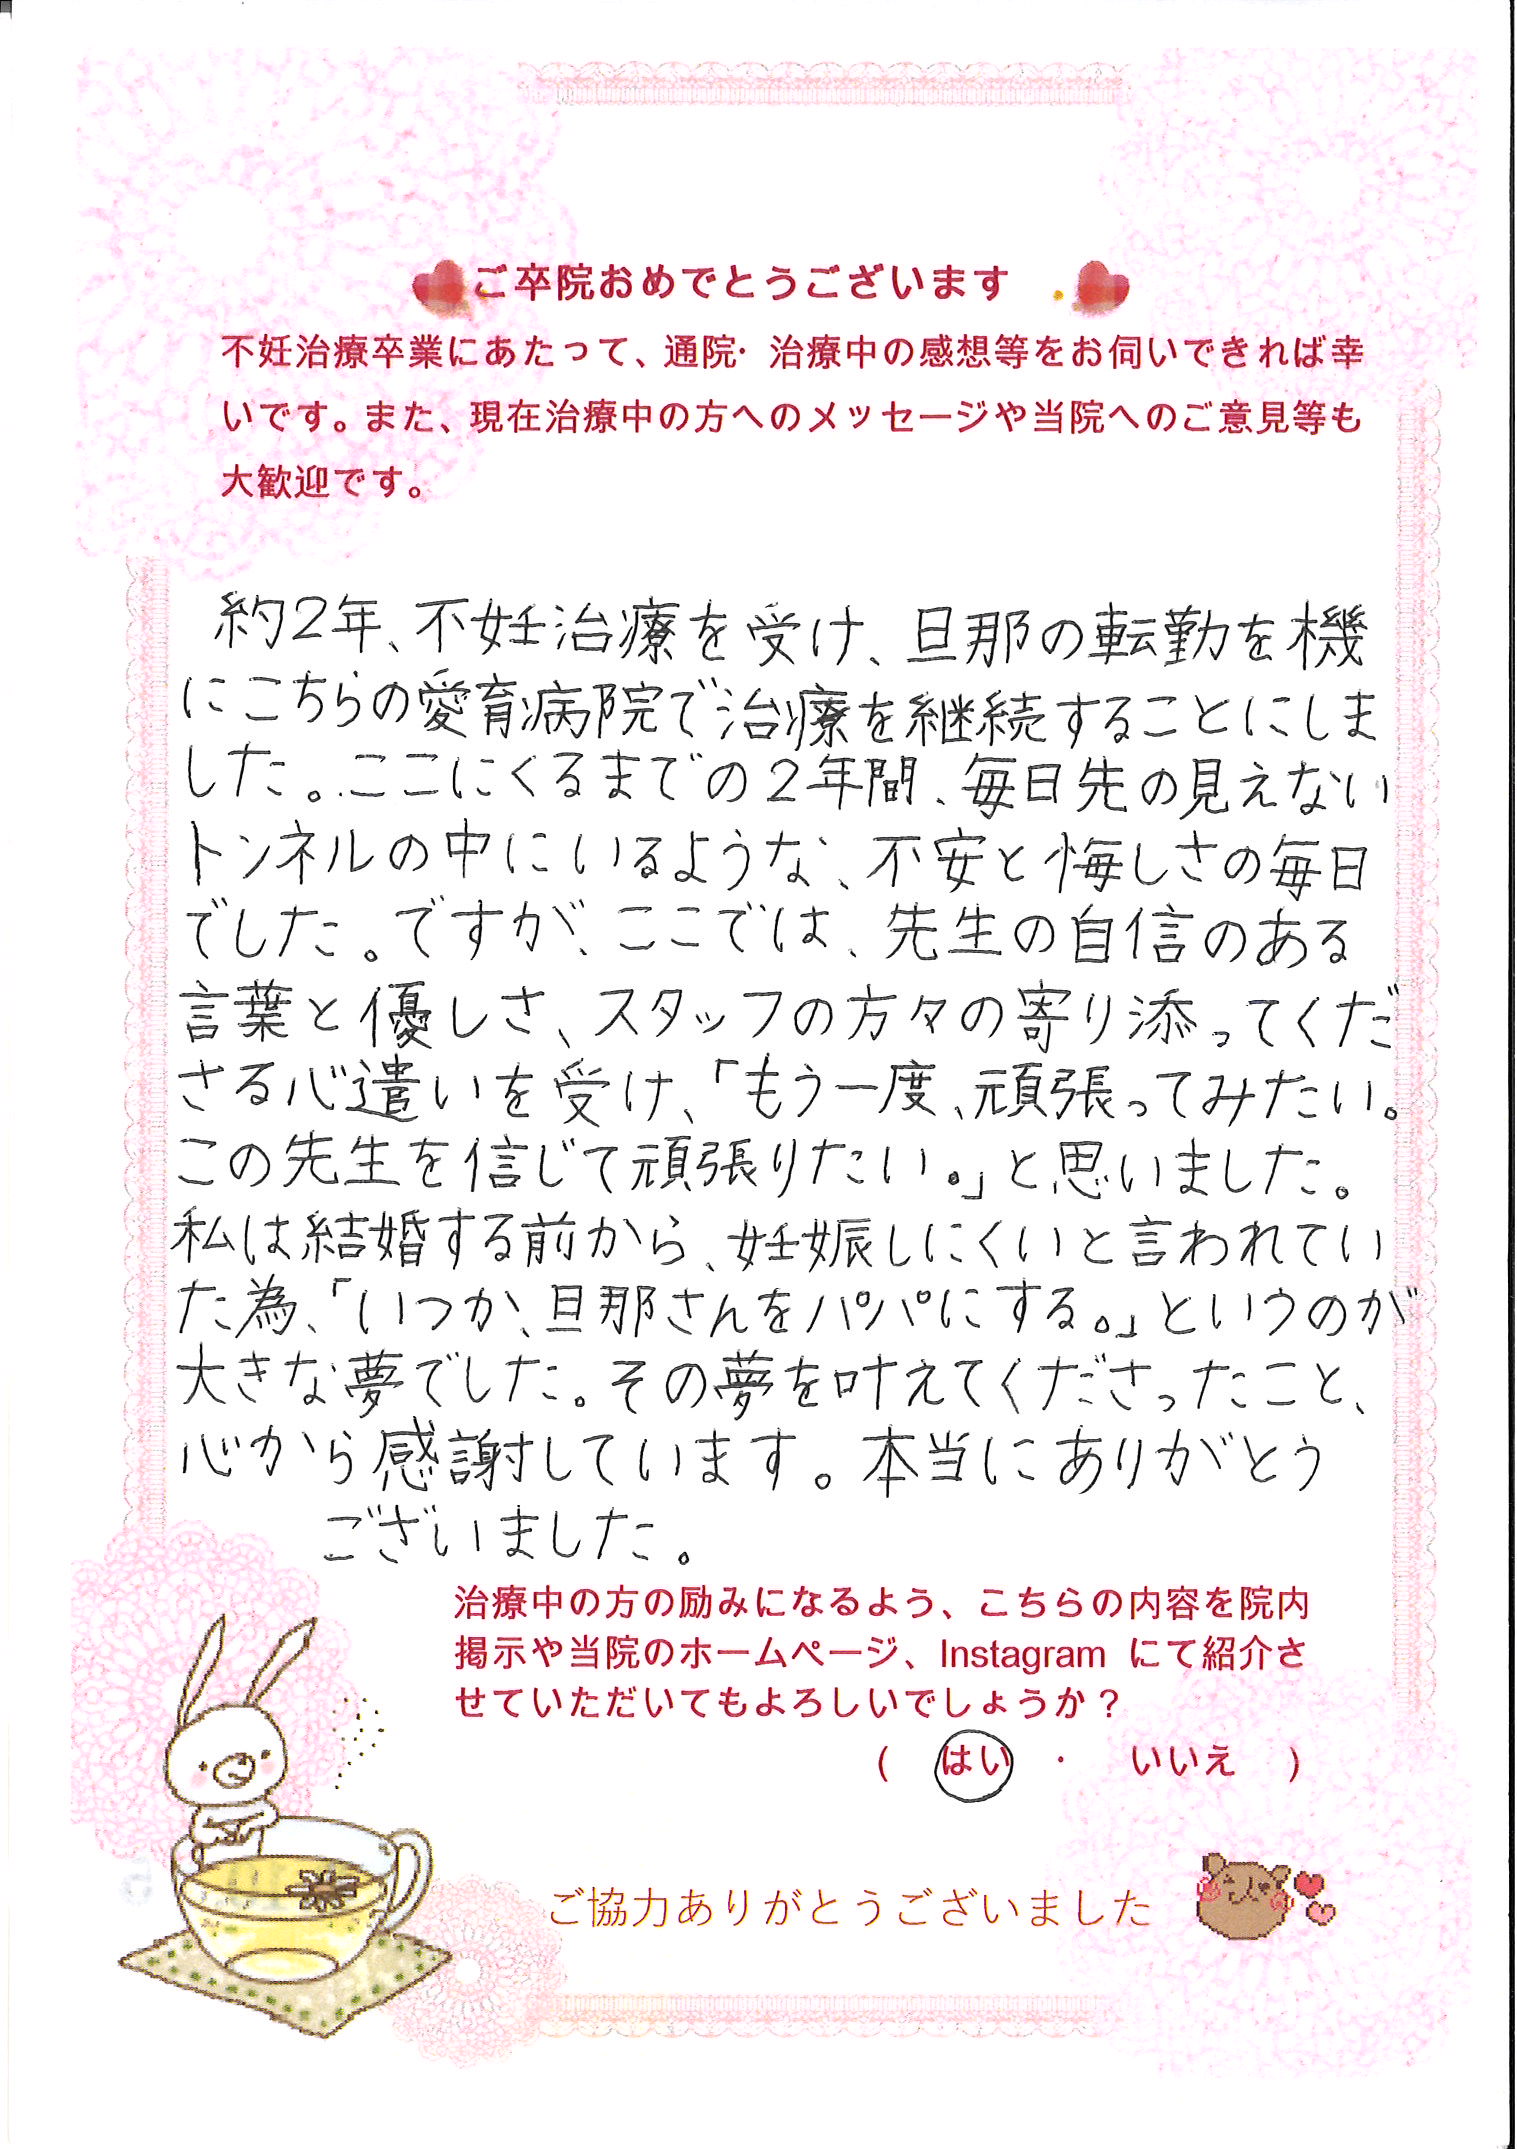 ご卒院おめでとうございます
不妊治療卒業にあたって、通院・治療中の感想等をお伺いできれば幸
いです。また、現在治療中の方へのメッセージや当院へのご意見等も
大歓迎です。
約2年、不妊治療を受け、旦那の転勤を機
にこちらの愛育病院で治療を継続することにしま
した。ここにくるまでの2年間、毎日先の見えない
トンネルの中にいるような、不安と悔しさの毎日
でした。ですが、ここでは、先生の自信のある
言葉と優しさ、スタッフの方々の寄り添ってくだ
さる心遣いを受け、「もう一度、頑張ってみたい。
この先生を信じて頑張りたい。」と思いました。
私は結婚する前から、妊娠しにくいと言われてい
た為、「いつか、旦那さんをパパにする。」というのが
大きな夢でした。その夢を叶えてくださったこと、
心から感謝しています。本当にありがとう
ございました。
治療中の方の励みになるよう、こちらの内容を院内
掲示や当院のホームページ、Instagram にて紹介さ
せていただいてもよろしいでしょうか？
( はい ・ いいえ )
ご協力ありがとうございました